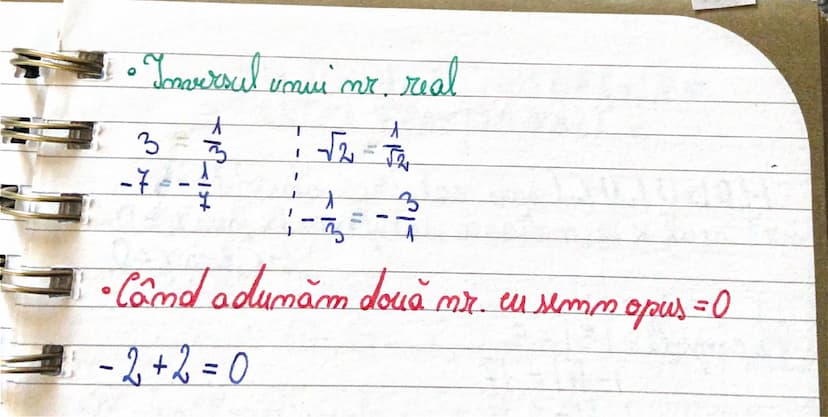 • Inversul unui nr. real
3 = 1/3 ¦ √2 = 1/√2
-7 = -1/7 ¦ -1/3 = -3/1
• Când adunăm două nr. cu semn opus = 0
-2 + 2 = 0